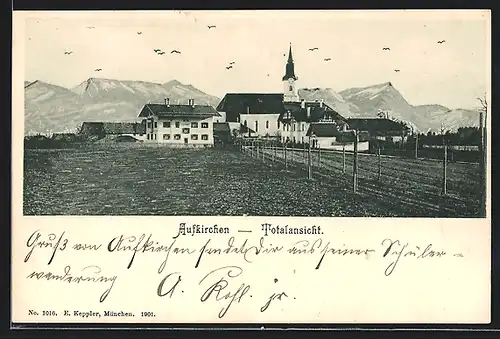 Aufkirchen — Totalansicht.
Gruß von Aufkirchen sendet Dir aus seiner Schüler=
wanderung
A. Kohl. jr.
No. 1016. E. Keppler, München. 1901.